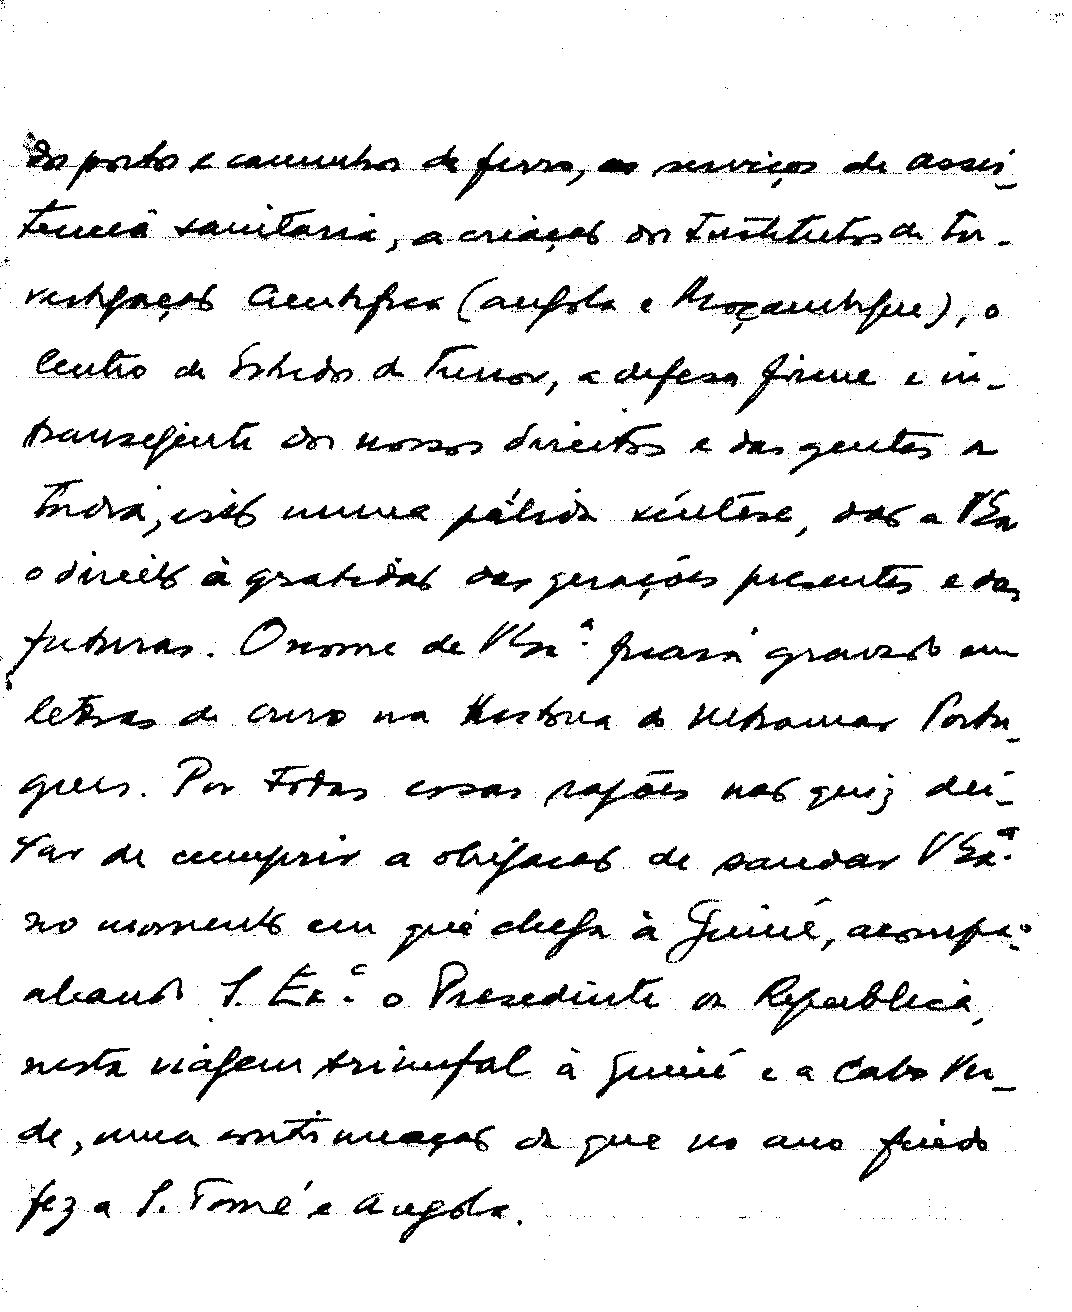 do porto e caminhos de ferro, os serviços de assis-
tencia sanitaria, a criação dos Institutos de In-
vestigação Cientifica (Angola e Moçambique), o
Centro de Estudos de Timor, a defesa firme e in-
transigente dos nossos direitos e das gentes da
India, isto numa pálida síntese, dão a V Exa
o direito à gratidão das gerações presentes e das
futuras. O nome de V Exª. ficará gravado em
letras de ouro na História do Ultramar Portu-
guês. Por todas essas razões não quiz dei-
xar de cumprir a obrigação de saudar V Exª.
no momento em que chega à Guiné, acompa-
nhando S. Exª. o Presidente da República,
nesta viagem triunfal à Guiné e a Cabo Ver-
de, numa continuação da que no ano findo
fez a S. Tomé e Angola.